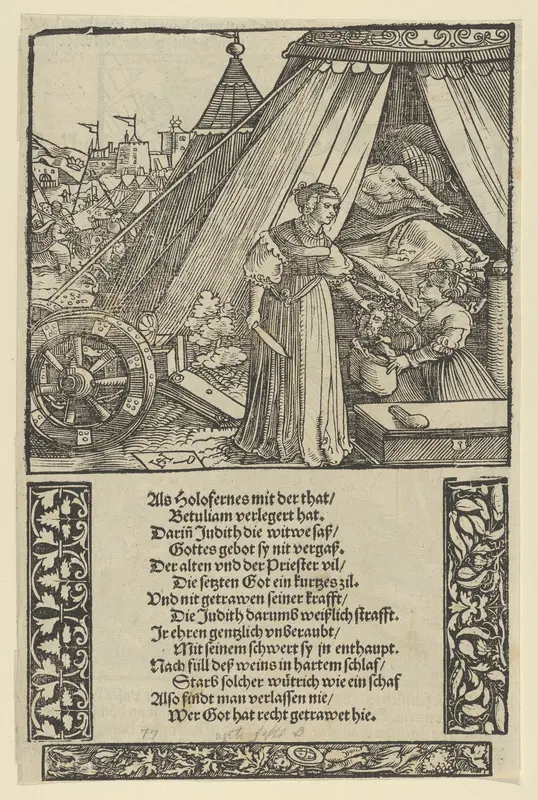 Als Holofernes mit der that/
Betuliam verlegert hat.
Dariñ Judith die witwe saß/
Gottes gebot sy nit vergaß.
Der alten vnd der Priester vil/
Die setzten Got ein kurtzes zil.
Vnd nit getrawen seiner krafft/
Die Judith darumb weißlich strafft.
Jr ehren gentzlich vnberaubt/
Mit seinem schwert sy jn enthaupt.
Nach füll deß weins in hartem schlaf/
Starb solcher wütrich wie ein schaf
Also findt man verlassen nie/
Wer Got hat recht getrawet hie.
77